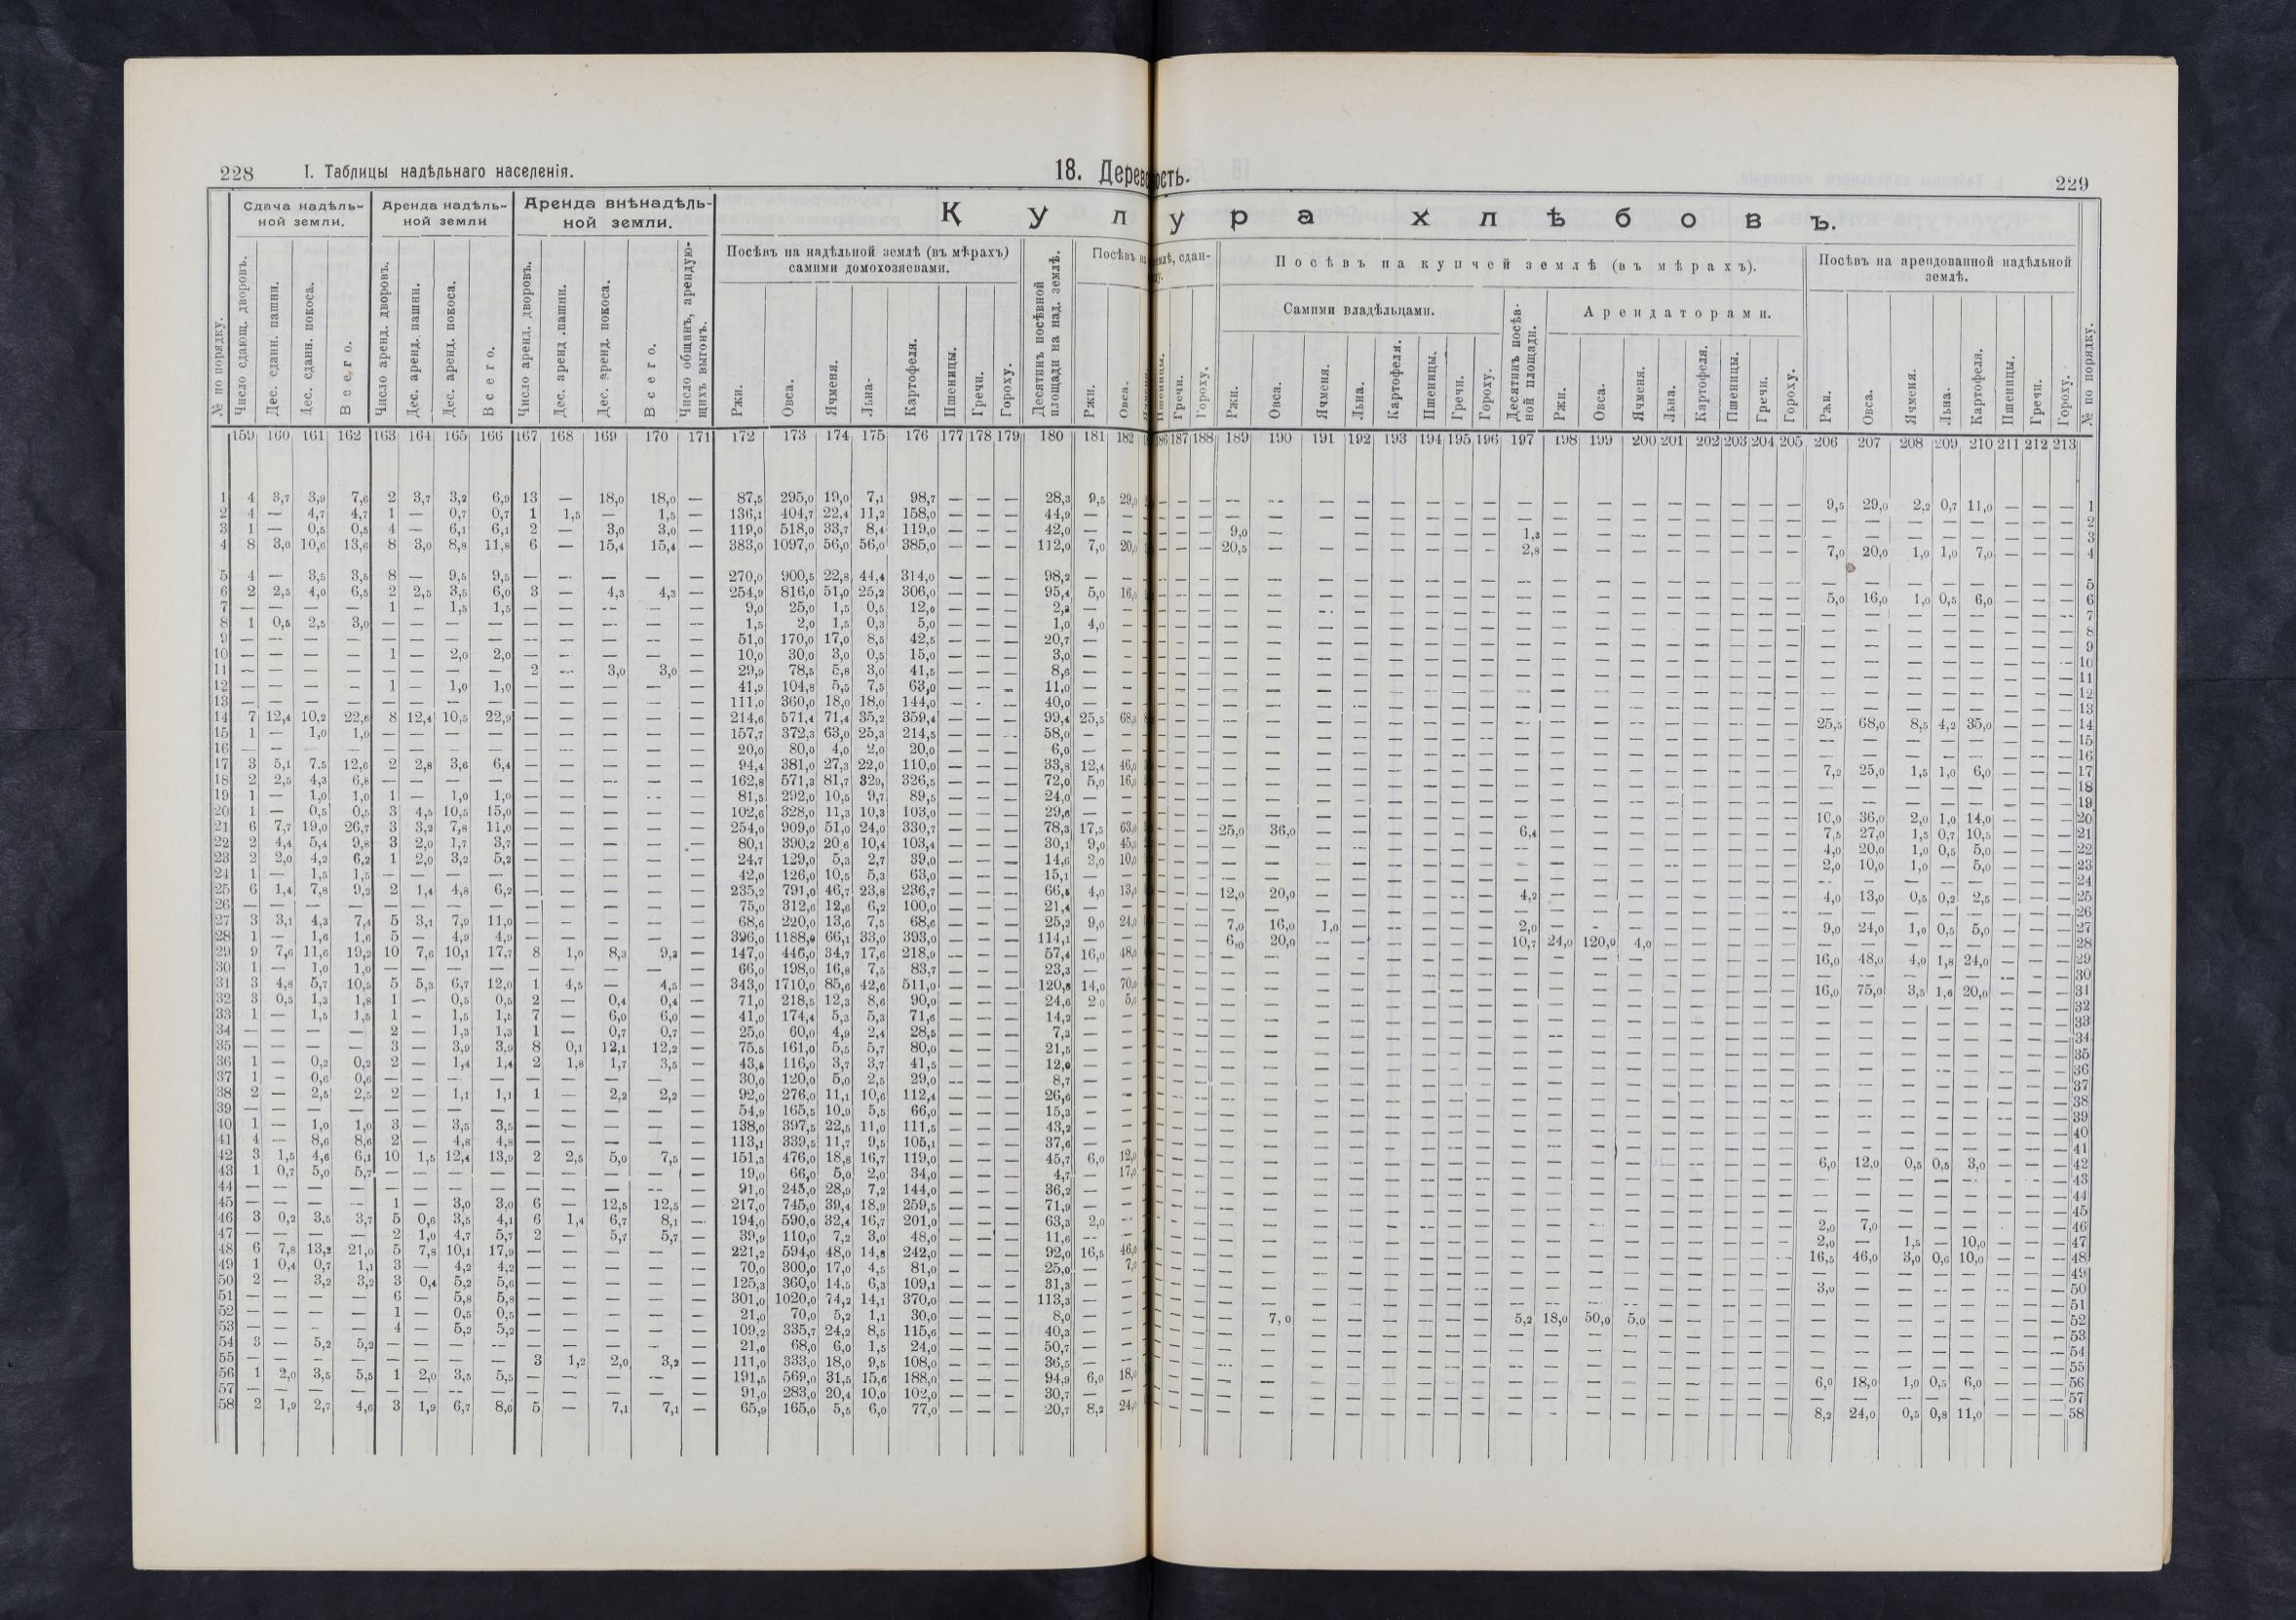 228 I. Таблицы надѣльнаго населенія. 18. Дерев
ость. 229
Сдача надѣль-
ной земли.
Аренда надѣль-
ной земли
Аренда внѣнадѣль-
ной земли.
К у л
у р а х л ѣ б о в ъ.
Посѣвъ на надѣльной землѣ (въ мѣрахъ)
самими домохозяевами.
Посѣвъ на
землѣ, сдан-
Посѣвъ на купчей землѣ (въ мѣрахъ).
Посѣвъ на арендованной надѣльной
землѣ.
Самими владѣльцами.
Арендаторами.
№ по порядку.
Число сдающ. дворовъ.
Дес. сданн. пашни.
Дес. сданн. покоса.
Всего.
Число аренд. дворовъ.
Дес. аренд. пашни.
Дес. аренд. покоса.
Всего.
Число аренд. дворовъ.
Дес. аренд .пашни.
Дес. аренд. покоса.
Всего.
Число общинъ, арендую-
щихъ выгонъ.
Ржи.
Овса.
Ячменя.
Льна-
Картофеля.
Пшеницы.
Гречи.
Гороху.
Десятинъ посѣвной
площади на над. землѣ.
Ржи.
Овса.
Пшеницы.
Гречи.
Гороху.
Ржи.
Овса.
Ячменя.
Льна.
Картофеля.
Пшеницы.
Гречи.
Гороху.
Десятинъ посѣв-
ной площади.
Ржи.
Овса.
Ячменя.
Льна.
Картофеля.
Пшеницы.
Гречи.
Гороху.
Ржи.
Овса.
Ячменя.
Льна.
Картофеля.
Пшеницы.
Гречи.
Гороху.
№ по порядку.
159 160 161 162 163 164 165 166 167 168 169 170 171 172 173 174 175 176 177 178 179 180 181 182
187 188 189 190 191 192 193 194 195 196 197 198 199 200 201 202 203 204 205 206 207 208 209 210 211 212 213
1 4 3,7 3,9 7,6 2 3,7 3,2 6,9 13 — 18,0 18,0 — 87,5 295,0 19,0 7,1 98,7 — — — 28,3 9,5 29,0
2 4 — 4,7 4,7 1 — 0,7 0,7 1 1,5 — 1,5 — 136,1 404,7 22,4 11,2 158,0 — — — 44,9 — —
3 1 — 0,5 0,5 4 — 6,1 6,1 2 — 3,0 3,0 — 119,0 518,0 33,7 8,4 119,0 — — — 42,0 — —
4 8 3,0 10,6 13,6 8 3,0 8,8 11,8 6 — 15,4 15,4 — 383,0 1097,0 56,0 56,0 385,0 — — — 112,0 7,0 20,0
5 4 — 3,5 3,5 8 — 9,5 9,5 — — — — — 270,0 900,5 22,8 44,4 314,0 — — — 98,2 — —
6 2 2,5 4,0 6,5 2 2,5 3,5 6,0 3 — 4,3 4,3 — 254,9 816,0 51,0 25,2 306,0 — — — 95,4 5,0 16,0
7 — — — — 1 — 1,5 1,5 — — — — — 9,0 25,0 1,5 0,5 12,0 — — — — —
8 1 0,5 2,5 3,0 — — — — — — — — — 1,5 2,0 1,5 0,3 5,0 — — — 1,0 4,0 —
9 — — — — — — — — — — — — — 51,0 170,0 17,0 8,5 42,5 — — — 20,7 — —
10 — — — — 1 — 2,0 2,0 — — — — — 10,0 30,0 3,0 0,5 15,0 — — — 3,0 — —
11 — — — — — — — — 2 — 3,0 3,0 — 29,9 78,5 5,8 3,0 41,5 — — — 8,6 — —
12 — — — — 1 — 1,0 1,0 — — — — — 41,9 104,8 5,5 7,5 63,0 — — — 11,0 — —
13 — — — — — — — — — — — — — 111,0 360,0 18,0 18,0 144,0 — — — 40,0 — —
14 7 12,4 10,2 22,6 8 12,4 10,5 22,9 — — — — — 214,6 571,4 71,4 35,2 359,4 — — — 99,4 25,5 68,0
15 1 — 1,0 1,0 — — — — — — — — — 157,7 372,3 63,0 25,3 214,5 — — — 58,0 — —
16 — — — — — — — — — — — — — 20,0 80,0 4,0 2,0 20,0 — — — 6,0 — —
17 3 5,1 7,5 12,6 2 2,8 3,6 6,4 — — — — — 94,4 381,0 27,3 22,0 110,0 — — — 33,8 12,4 46,0
18 2 2,5 4,3 6,8 — — — — — — — — — 162,8 571,3 81,7 329, 326,5 — — — 72,0 5,0 16,0
19 1 — 1,0 1,0 1 — 1,0 1,0 — — — — — 81,5 292,0 10,5 9,7 89,5 — — — 24,0 — —
20 1 — 0,5 0,5 3 4,5 10,5 15,0 — — — — — 102,6 328,0 11,3 10,3 103,0 — — — 29,6 — —
21 6 7,7 19,0 26,7 3 3,2 7,8 11,0 — — — — — 254,0 909,0 51,0 24,0 330,7 — — — 78,3 17,5 63,0
22 2 4,4 5,4 9,8 3 2,0 1,7 3,7 — — — — — 80,1 390,2 20,6 10,4 103,4 — — — 30,1 9,0 45,0
23 2 2,0 4,2 6,2 1 2,0 3,2 5,2 — — — — — 24,7 129,0 5,3 2,7 39,0 — — — 14,6 2,0 10,0
24 1 — 1,5 1,5 — — — — — — — — — 42,0 126,0 10,5 5,3 63,0 — — — 15,1 — —
25 6 1,4 7,8 9,2 2 1,4 4,8 6,2 — — — — — 235,2 791,0 46,7 23,8 236,7 — — — 66,5 4,0 13,0
26 — — — — — — — — — — — — — 75,0 312,6 12,6 6,2 100,0 — — — 21,4 — —
27 3 3,1 4,3 7,4 5 3,1 7,9 11,0 — — — — — 68,6 220,0 13,6 7,5 68,6 — — — 25,2 9,0 24,0
28 1 — 1,6 1,6 5 — 4,9 4,9 — — — — — 396,0 1188,0 66,1 33,0 393,0 — — — 114,1 — —
29 9 7,6 11,6 19,2 10 7,6 10,1 17,7 8 1,0 8,3 9,3 — 147,0 446,0 34,7 17,6 218,9 — — — 57,4 16,0 48,0
30 1 — 1,0 1,0 — — — — — — — — — 66,0 198,0 16,8 7,5 83,7 — — — 23,3 — —
31 3 4,8 5,7 10,5 5 5,3 6,7 12,0 1 4,5 — 4,5 — 343,0 1710,0 85,6 42,6 511,0 — — — 120,8 14,0 70,0
32 3 0,5 1,3 1,8 1 — 0,5 0,5 2 — 0,4 0,4 — 71,0 218,5 12,3 8,6 90,0 — — — 24,6 2 0 5,0
33 1 — 1,5 1,5 1 — 1,5 1,5 7 — 6,0 6,0 — 41,0 174,4 5,3 5,3 71,6 — — — 14,2 — —
34 — — — — 2 — 1,3 1,3 1 — 0,7 0,7 — 25,0 60,0 4,9 2,4 28,5 — — — 7,3 — —
35 — — — — 3 — 3,9 3,9 8 0,1 12,1 12,2 — 75,5 161,0 5,5 5,7 80,0 — — — 21,5 — —
36 1 — 0,2 0,2 2 — 1,4 1,4 2 1,8 1,7 3,5 — 43,5 116,0 3,7 3,7 41,5 — — — 12,0 — —
37 1 — 0,6 0,6 — — — — — — — — — 30,0 120,0 5,0 2,5 29,0 — — — 8,7 — —
38 2 — 2,5 2,5 2 — 1,1 1,1 1 — 2,2 2,2 — 92,0 276,0 11,1 10,6 112,4 — — — 26,6 — —
39 — — — — — — — — — — — — — 54,9 165,5 10,9 5,5 66,0 — — — 15,3 — —
40 1 — 1,0 1,0 3 — 3,5 3,5 — — — — — 138,0 397,5 22,5 11,0 111,5 — — — 43,2 — —
41 4 — 8,6 8,6 2 — 4,8 4,8 — — — — — 113,1 339,5 11,7 9,5 105,1 — — — 37,6 — —
42 3 1,5 4,6 6,1 10 1,5 12,4 13,9 2 2,5 5,0 7,5 — 151,3 476,0 18,8 16,7 119,0 — — — 45,7 6,0 12,0
43 1 0,7 5,0 5,7 — — — — — — — — — 19,0 66,0 5,0 2,0 34,0 — — — 4,7 — 17,0
44 — — — — — — — — — — — — — 91,0 245,0 28,9 7,2 144,0 — — — 36,2 — —
45 — — — — 1 — 3,0 3,0 6 — 12,5 12,5 — 217,0 745,0 39,4 18,9 259,5 — — — 71,9 — —
46 3 0,2 3,5 3,7 5 0,6 3,5 4,1 6 1,4 6,7 8,1 — 194,0 590,0 32,4 16,7 201,0 — — — 63,3 2,0 —
47 — — — — 2 1,0 4,7 5,7 2 — 5,7 5,7 — 39,9 110,0 7,2 3,0 48,0 — — — 11,6 — —
48 6 7,8 13,2 21,0 5 7,8 10,1 17,9 — — — — — 221,2 594,0 48,0 14,8 242,0 — — — 92,0 16,5 46,0
49 1 0,4 0,7 1,1 3 — 4,2 4,2 — — — — — 70,0 300,0 17,0 4,5 81,0 — — — 25,0 — 7,0
50 2 — 3,2 3,2 3 0,4 5,2 5,6 — — — — — 125,3 360,0 14,5 6,3 109,1 — — — 31,3 — —
51 — — — — 6 — 5,8 5,8 — — — — — 301,0 1020,0 74,2 14,1 370,0 — — — 113,3 — —
52 — — — — 1 — 0,5 0,5 — — — — — 21,0 70,0 5,2 1,1 30,0 — — — 8,0 — —
53 — — — — 4 — 5,2 5,2 — — — — — 109,2 335,7 24,2 8,5 115,6 — — — 40,3 — —
54 3 — 5,2 5,2 — — — — — — — — — 21,0 68,0 6,0 1,5 24,0 — — — 50,7 — —
55 — — — — — — — — 3 1,2 2,0 3,2 — 111,0 333,0 18,0 9,5 108,0 — — — 36,5 — —
56 1 2,0 3,5 5,5 1 2,0 3,5 5,5 — — — — — 191,5 569,0 31,5 15,6 188,0 — — — 94,9 6,0 18,0
57 — — — — — — — — — — — — — 91,0 283,0 20,4 10,0 102,0 — — — 30,7 — —
58 2 1,9 2,7 4,6 3 1,9 6,7 8,6 5 — 7,1 7,1 — 65,9 165,0 5,5 6,0 77,0 — — — 20,7 8,2 24,0
— — — — — — — — — — — — — — — — — — — — 9,5 29,0 2,2 0,7 11,0 — — — 1
— — — — — — — — — — — — — — — — — — — — — — — — — — — — 2
— — — 9,0 — — — — — — — 1,3 — — — — — — — — — — — — — — — — 3
— — — 20,5 — — — — — — — 2,8 — — — — — — — — 7,0 20,0 1,0 1,0 7,0 — — — 4
— — — — — — — — — — — — — — — — — — — — — — — — — — — — 5
— — — — — — — — — — — — — — — — — — — — 5,0 16,0 1,0 0,5 6,0 — — — 6
— — — 7
— — — 8
— — — 9
— — — 10
— — — 11
— — — 12
— — — 13
— — — 25,5 68,0 8,5 4,2 35,0 — — — 14
— — — 15
— — — 16
— — — 7,2 25,0 1,5 1,0 6,0 — — — 17
— — — 18
— — — 19
— — — 10,0 36,0 2,0 1,0 14,0 — — — 20
— — — 25,0 36,0 — — — — — — 6,4 — — — — — — — — 7,5 27,0 1,5 0,7 10,5 — — — 21
— — — 4,0 20,0 1,0 0,5 5,0 — — — 22
— — — 2,0 10,0 1,0 — 5,0 — — — 23
— — — 24
— — — 12,0 20,0 — — — — — — 4,2 — — — — — — — — 4,0 13,0 0,5 0,2 2,5 — — — 25
— — — 26
— — — 7,0 16,0 1,0 — — — — — 2,0 — — — — — — — — 9,0 24,0 1,0 0,5 5,0 — — — 27
— — — 6,0 20,0 — — — — — — 10,7 24,0 120,0 4,0 — — — — — — — — — — — — — 28
— — — 16,0 48,0 4,0 1,8 24,0 — — — 29
— — — 30
— — — 16,0 75,0 3,5 1,6 20,0 — — — 31
— — — 32
— — — 33
— — — 34
— — — 35
— — — 36
— — — 37
— — — 38
— — — 39
— — — 40
— — — 41
— — — 6,0 12,0 0,5 0,5 3,0 — — — 42
— — — 43
— — — 44
— — — 45
— — — 2,0 7,0 — — — — — — 46
— — — 2,0 — 1,5 — 10,0 — — — 47
— — — 16,5 46,0 3,0 0,6 10,0 — — — 48
— — — 49
— — — 3,0 — — — — — — — 50
— — — 51
— — — — 7,0 — — — — — — 5,2 18,0 50,0 5,0 — — — — — — — — — — — — — 52
— — — 53
— — — 54
— — — 55
— — — 6,0 18,0 1,0 0,5 6,0 — — — 56
— — — 57
— — — 8,2 24,0 0,5 0,8 11,0 — — — 58